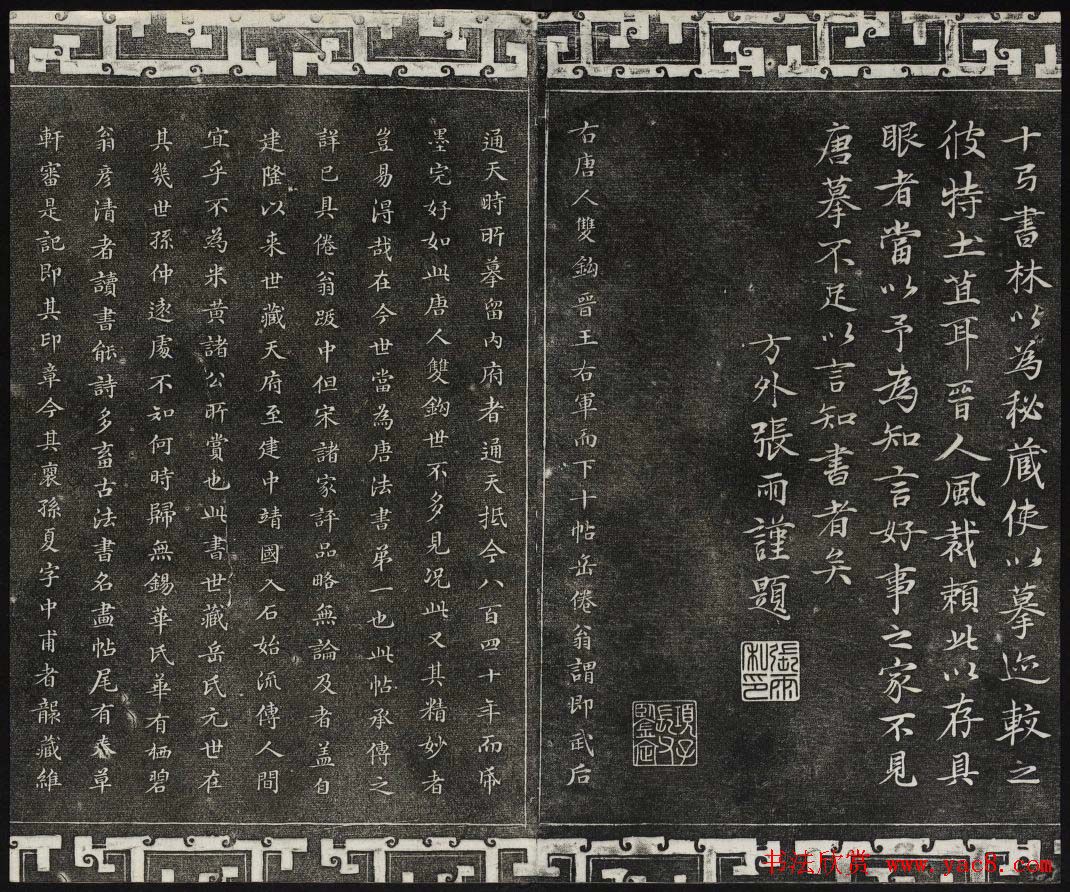 十弓書林以為秘藏使以摹迹較之
彼特土苴耳晉人風裁賴此以存具
眼者當以予為知言好事之家不見
唐摹不足以言知書者矣
方外張雨謹題
張雨私印
項子長父鑒定
右唐人雙鈎晉王右軍而下十帖岳倦翁謂即武后
通天時所摹留內府者通天抵今八百四十年而帋
墨完好如此唐人雙鈎世不多見況此又其精妙者
豈易淂哉在今世當為唐法書弟一也此帖承傳之
詳已具倦翁跋中但宋諸家評品略無論及者盖自
建隆以来世藏天府至建中靖國入石始流傳人間
宜乎不為米黄諸公所賞也此書世藏岳氏元世在
其幾世孫仲遠處不知何時歸無錫華氏華有栖碧
翁彦清者讀書能詩多畜古法書名畫帖尾有春草
軒審是記即其印章今其裔孫夏字中甫者韞藏維
书法欣赏 www.yac8.com